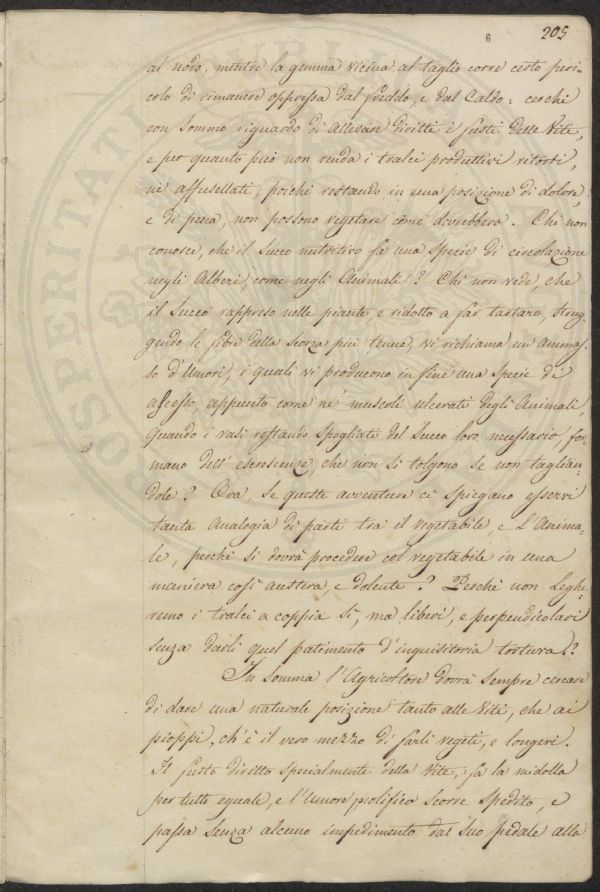 6 205
al nodo, mentre la gemma vicina al taglio corre certo peri-
colo di rimanere oppressa dal freddo, e dal Caldo: cerchi
con sommo riguardo di allevare diritti i fusti delle Viti,
e per quanto può non renda i tralci produttivi ritorti,
nè affusellati, poichè restando in una posizione di dolore,
e di pena, non possono vegetare come dovrebbero. Chi non
conosce, che il Succo nutritivo fa una specie di circolazione
negli Alberi, come negli Animali? Chi non vede, che
il Succo rappreso nelle piante, e ridotto a far tartaro, strug-
gendo le fibre della scorza più tenue, vi richiama un'ammas-
so d'Umori, i quali vi producono in fine una specie di
ascesso, appunto come ne' muscoli ulcerati degli Animali,
quando i vasi restando spogliati del Succo loro necessario, for-
mano dell'escrescenze, che non si tolgono se non taglian-
dole? Ora, se queste avventure ci spiegano esservi
tanta Analogia di parti tra il vegetabile, e l'Anima-
le, perchè si dovrà procedere col vegetabile in una
maniera così austera, e dolente? Perchè non leghe-
remo i tralci a coppia sì, ma liberi, e perpendicolari
senza darli quel patimento d'inquisitoria tortura?
In somma l'Agricoltore dovrà sempre cercare
di dare una naturale posizione tanto alle Viti, che ai
pioppi, ch'è il vero mezzo di farli vegeti, e longevi.
Il fusto diritto specialmente della Vite, fa la midolla
per tutto eguale, e l'Umore prolifico scorre spedito, e
passa senza alcuno impedimento dal suo pedale alla
PROSPERITATI PUBLI